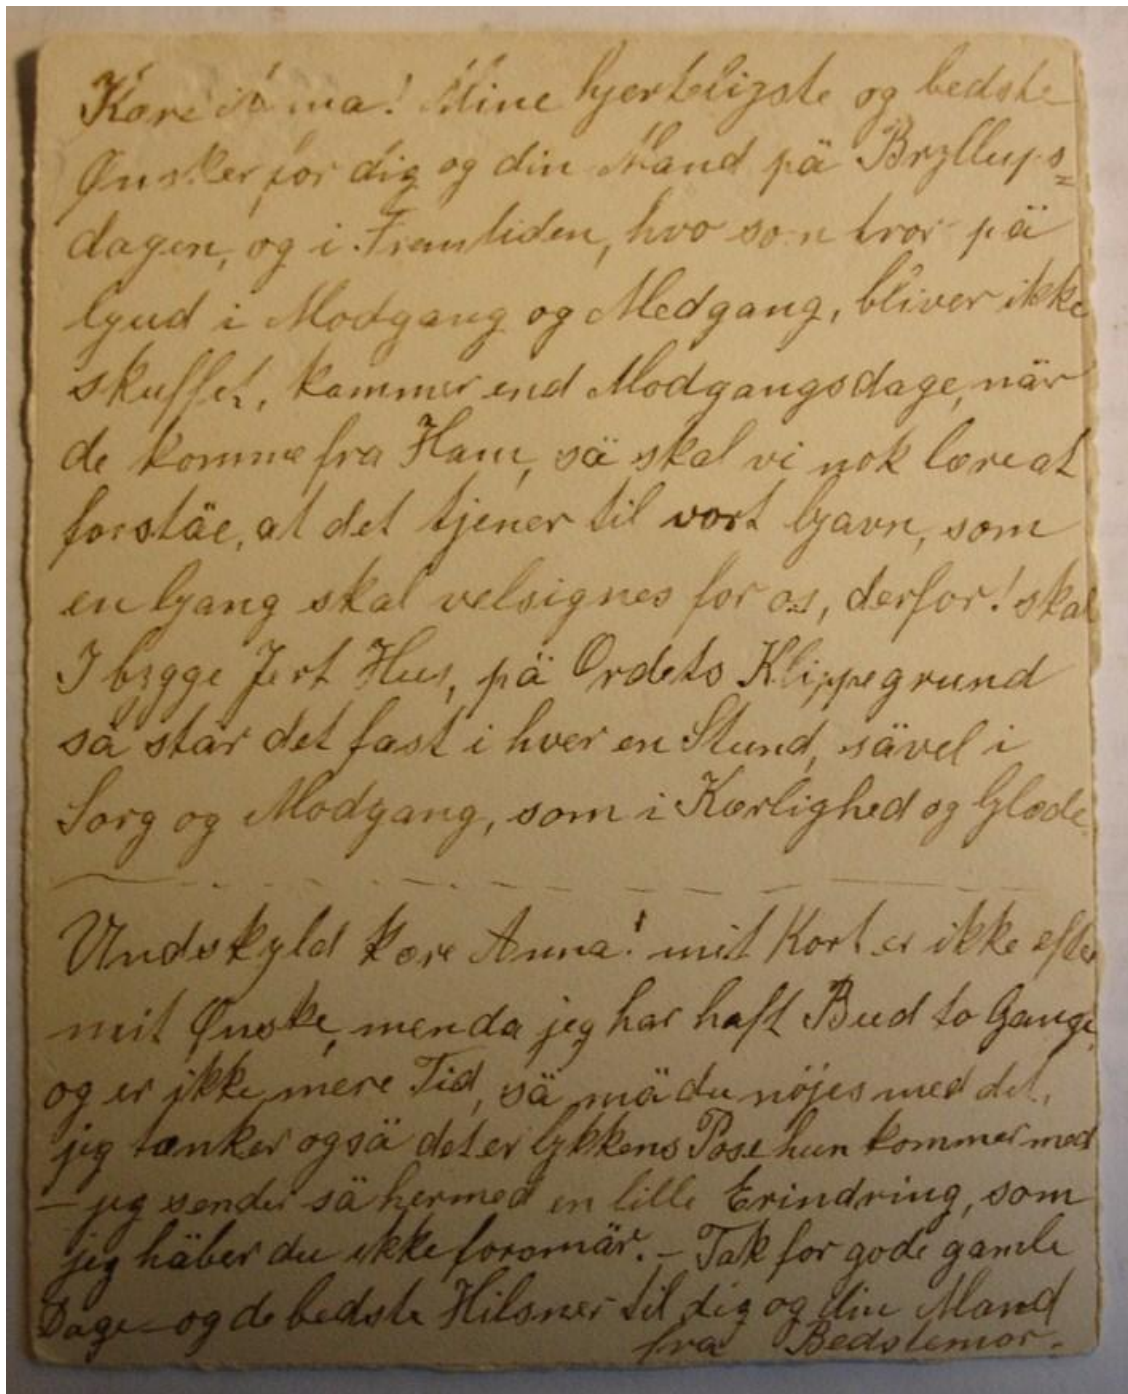 Kære Anna! Mine hjerteligste og bedste
Ønsker for dig og din Mand på Bryllups=
dagen, og i Fremtiden, hvo som tror på
Gud i Modgang og Medgang, bliver ikke
skuffet, kommer end Modgangsdage, når
de komme fra Ham, så skal vi nok lære at
forståe, at det tjener til vort Gavn, som
en Gang skal velsignes for os, derfor! skal
I bygge Jert Hus, på Ordets Klippegrund
så står det fast i hver en Stund, såvel i
Sorg og Modgang, som i Kærlighed og Glæde.
Undskyld kære Anna! mit Kort er ikke efter
mit Ønske, men da jeg har haft Bud to Gange,
og er ikke mere Tid, så må du nöjes med det,
jeg tænker også det er lykkens Pose hun kommer med
– jeg sender så hermed en lille Erindring, som
jeg håber du ikke forsmår. – Tak for gode gamle
Dage – og de bedste Hilsner til dig og din Mand
fra Bedstemor.